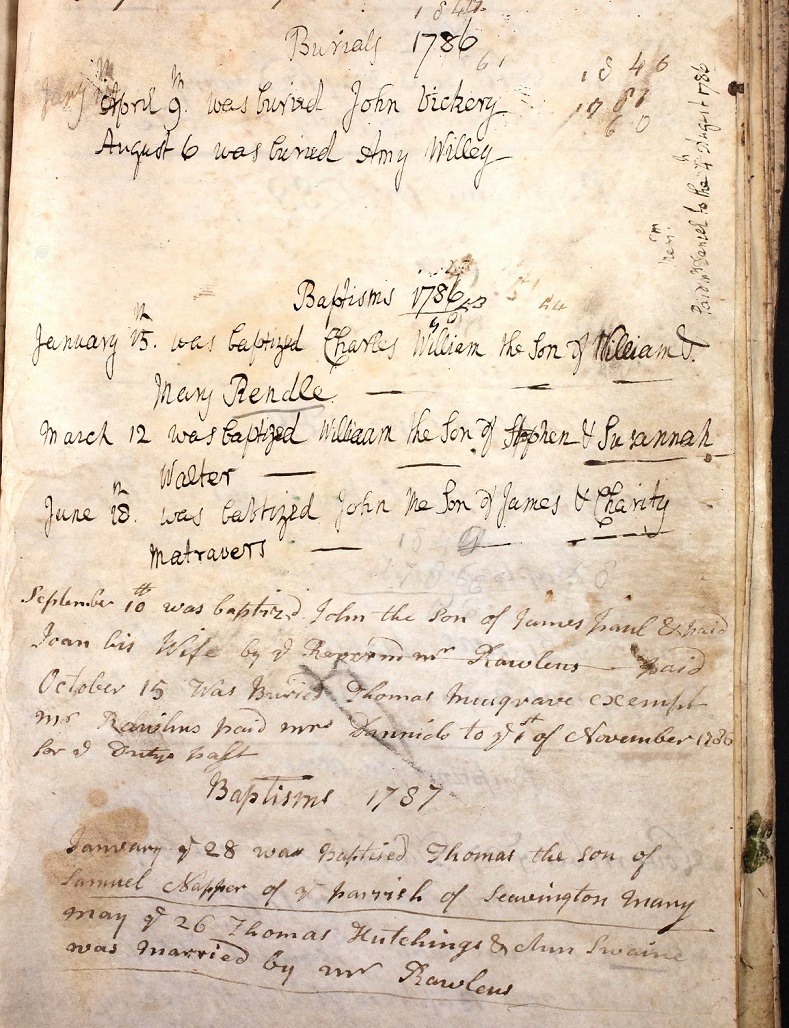 1847
Burials 1786
61
1846
April 9th. was buried John Vickery
1786
60
August 6 was buried Amy Willey
Paid Mr Daniel to the 4th August 1786
Baptisms 1786
January 15th. was baptized Charles William the Son of William &
Mary Rendle
March 12 was baptized William the Son of Stephen & Susannah
Walter
June 18th. was babtized John the Son of James & Charity
Matravers
September 10th was baptizd John the Son of James paul & paid
Joan his Wife by ye Reverend mr Rawlens paid
October 15 Was Buried Thomas Musgrave exempt
mr Rawlins paid mrs to ye 1st of November 1786
for ye Dutys past
Baptisms 1787
January ye 28 was baptised Thomas the son of
Samuel Napper of ye parrish of Seavington Mary
may ye 26 Thomas Hutchings & Ann Swaine
was married by mr Rawlens